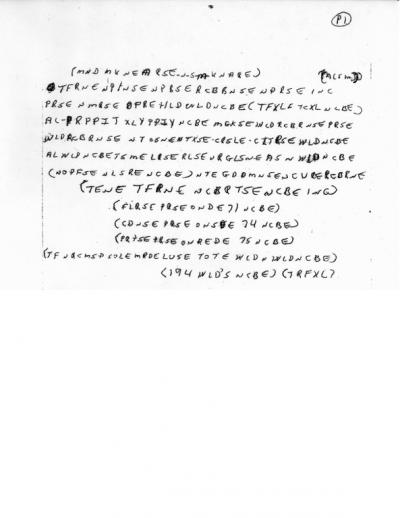 P1
(MND MKNEARSE-N-S-M-KNARE) (ACSM)
TFRNE NPINSE NPBSE RCBBRNSE NPRSE INC
PRSE NMRSE OPREHLDWLDNCBE (TFXLF TCXL NCBE)
AL-PRPPIT XLY PPIY NCBE MGKSE WLDRCBRNSE PRSE
WLDRCBRNSE NTOSNENTXSE-CRSLE-CITRSE WLDNCBE
ALWLDNCBE TSMELRSERLSEURGLSNEASNWLDNCBE
(NOPFSE NLSRE NCBE) NTEGDDMNSENCURERCBRNE
(TENE TFRNE NCBRTSENCBE ING)
(FLRSE PRSE ONDE 71 NCBE)
(CDNSE PRSE ONSDE 74 NCBE)
(PRTSE PRSE ONREDE 75 NCBE)
(TFNQCMSP SOLE MRDELUSE TOTE WLDN WLDNCBE)
(194 WLD'S NCBE) (TRFXL)